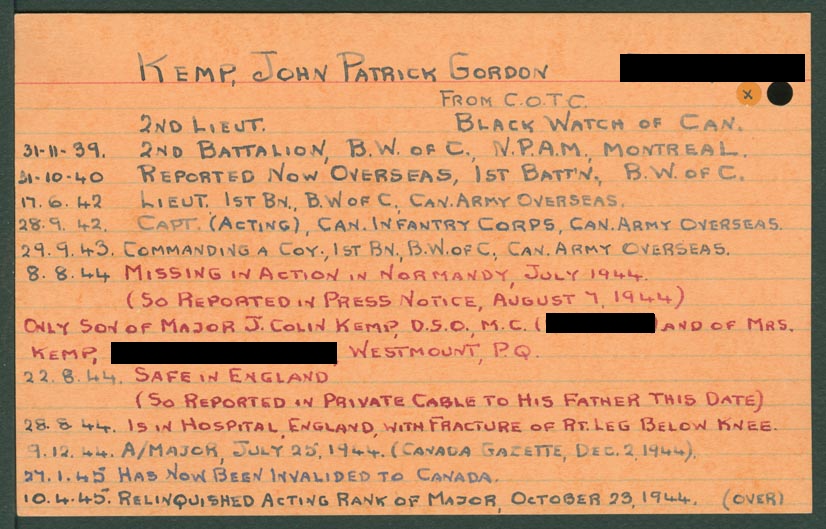 KEMP, JOHN PATRICK GORDON
FROM C.O.T.C. x
2ND LIEUT. BLACK WATCH OF CAN.
31-11-39. 2ND BATTALION, B.W. OF C., N.P.A.M., MONTREAL.
31-10-40 REPORTED NOW OVERSEAS, 1ST BATT'N, B.W. OF C.
17.6.42 LIEUT. 1ST BN., B.W OF C, CAN. ARMY OVERSEAS.
28.9.42. CAPT. (ACTING), CAN. INFANTRY CORPS, CAN. ARMY OVERSEAS.
29.9.43. COMMANDING A COY., 1ST BN, B.W. OF C, CAN. ARMY OVERSEAS.
8.8.44 MISSING IN ACTION IN NORMANDY, JULY 1944.
(SO REPORTED IN PRESS NOTICE, AUGUST 7, 1944)
ONLY SON OF MAJOR J. COLIN KEMP, D.S.O., M.C. ( ) AND OF MRS.
KEMP, , WESTMOUNT, P.Q.
22.8.44. SAFE IN ENGLAND
(SO REPORTED IN PRIVATE CABLE TO HIS FATHER THIS DATE)
28.8.44. IS IN HOSPITAL, ENGLAND, WITH FRACTURE OF RT. LEG BELOW KNEE.
9.12.44. A/MAJOR, JULY 25, 1944. (CANADA GAZETTE, DEC. 2, 1944).
27.1.45 HAS NOW BEEN INVALIDED TO CANADA.
10.4.45. RELINQUISHED ACTING RANK OF MAJOR, OCTOBER 23, 1944. (OVER)